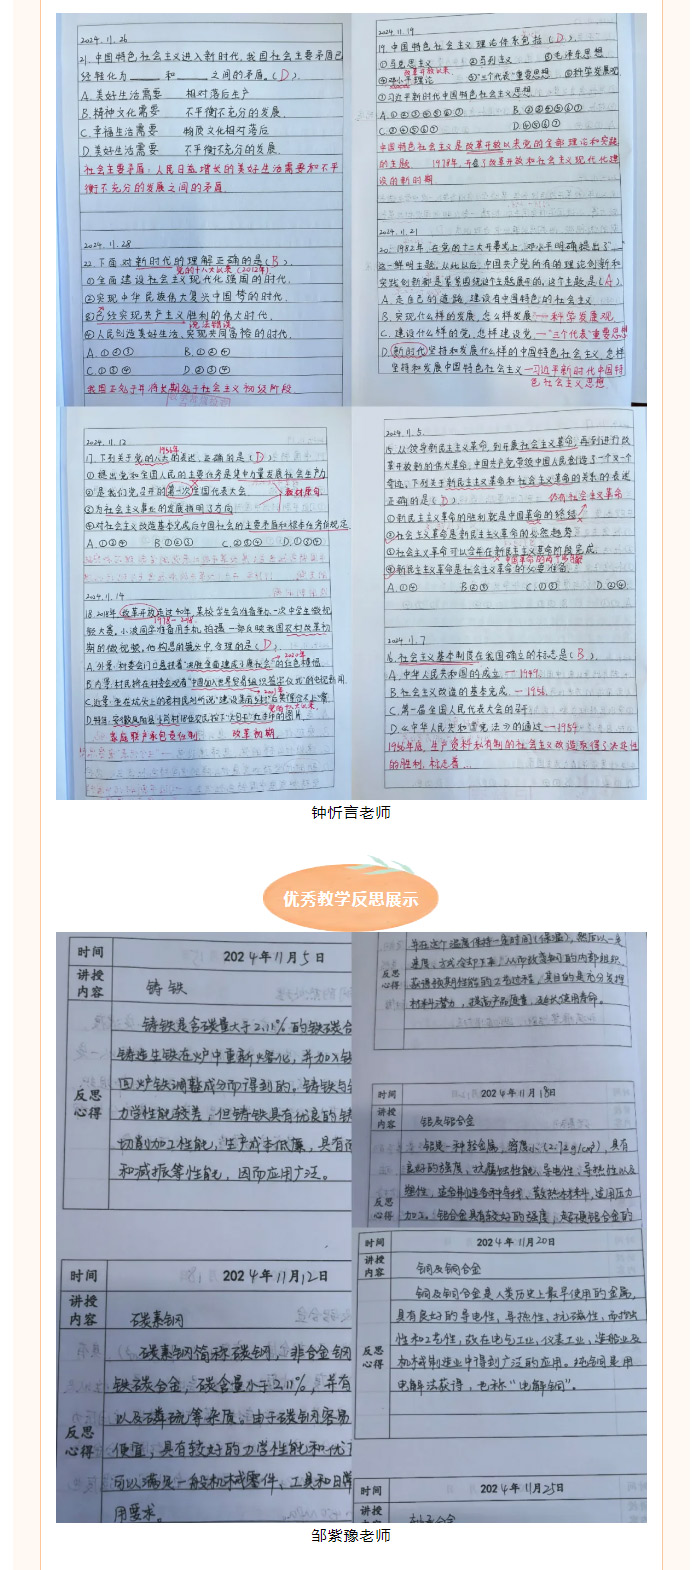 2024.11.26
21.中国特色社会主义进入新时代,我国社会主要矛盾已
经转化为____和____之间的矛盾。(D)
A.美好生活需要 相对落后生产
B.精神文化需要 不平衡不充分的发展.
C.幸福生活需要 物质文化相对落后
D.美好生活需要 不平衡不充分的发展.
社会主要矛盾:人民日益增长的美好生活需要和不平
衡不充分的发展之间的矛盾.
2024.11.28
22.下面对新时代的理解正确的是(B).
党的十八大以来(2012年)
①全面建设社会主义现代化强国的时代.
②实现中华民族伟大复兴中国梦的时代.
③已经实现共产主义胜利的伟大时代.
说法错误
④人民创造美好生活、实现共同富裕的时代.
A.①②③ B.①②④
C.①③④ D.②③④
我国正处于并将长期处于社会主义初级阶段
2024.11.19
19.中国特色社会主义理论体系包括(D).
①马克思主义 ②马列主义 ③毛泽东思想
改革开放以来
④邓小平理论 ⑤"三个代表"重要思想 ⑥科学发展观
⑦习近平新时代中国特色社会主义思想
C.②④⑤⑥⑦ D.④⑤⑥⑦
中国特色社会主义是改革开放以来党的全部理论和实践
的主题 1978年,开启了改革开放和社会主义现代化建
设的新时期
2024.11.21
20.1982年,在党的十二大开幕式上,邓小平明确提出了"__"
这一鲜明主题,从此以后,中国共产党所有的理论创新和
实践创新都是紧紧围绕这个主题展开的,这个主题是(A)
A.走自己的道路,建设有中国特色的社会主义
B.实现什么样的发展,怎么样发展—科学发展观
C.建设什么样的党,怎样建设党—"三个代表"重要思想
D.新时代坚持和发展什么样的中国特色社会主义,怎样
坚持和发展中国特色社会主义—习近平新时代中国特
色社会主义思想
2024.11.12
1956年
17.下列关于党的八大的表述,正确的是(D)
①提出党和全国人民的主要任务是集中力量发展社会生产力
②是我们党召开的第一次全国代表大会. 教材原句.
③为社会主义事业的发展指明了方向
④对社会主义改造基本完成后中国社会的主要矛盾和根本任务作规定
A.①②④ B.①②③ C.②③④ D.①③④
2024.11.14
18.2018年,改革开放走过40年,某校学生会准备举办一次中学生微视
1978-2018.
频大赛。小波同学准备用手机拍摄一部反映我国农村改革初
期的微视频。他构思的镜头中,合理的是(D)
2020年
A.外景:村委会门口悬挂着"决胜全面建成小康社会"的红色横幅.
B.内景:村民将在村委会观看"中国加入世界贸易组织签字仪式"的电视新闻.
2001年
党的十八大以来
家庭联产承包责任制 改革初期.
2024.11.5
15.从领导新民主主义革命,到开展社会主义革命,再到进行改
革开放新的伟大革命,中国共产党带领中国人民创造了一个又一个
奇迹,下列关于新民主主义革命和社会主义革命的关系的表述
正确的是(D) 仍有社会主义革命
①新民主主义革命的胜利就是中国革命的终结
②社会主义革命是新民主主义革命的必然趋势.
③社会主义革命可以合并在新民主主义革命阶段完成.
④新民主主义革命是社会主义革命的必要准备.
A.①④ B.②③ C.①③ D.②④
2024.11.7
16.社会主义基本制度在我国确立的标志是(B).
A.中华人民共和国的成立 — 1949.
B.社会主义改造的基本完成 — 1956.
C.第一届全国人民代表大会的召开
D.《中华人民共和国宪法》的通过 — 1954
1956年底,生产资料私有制的社会主义改造取得了决定性
的胜利,标志着...
钟忻言老师
优秀教学反思展示
时间 2024年11月5日
讲授
内容 铸铁
铸铁是含碳量大于2.11%的铁碳合
铸造生铁在炉中重新熔化,并加入铁
回炉铁调整成分而得到的。铸铁与钢
力学性能较差,但铸铁具有优良的铸
反思
心得
切削加工性能,生产成本低廉,具有耐
和减振等性能,因而应用广泛。
时间 2024年11月12日
讲授
内容 碳素钢
碳素钢简称碳钢,非合金钢
铁碳合金,碳含量小于2.11%,并有
以及磷硫等杂质。由于碳钢容易
反思
心得
便宜,具有较好的力学性能和优了
可以满足一般机械零件、工具和日常
用要求。
并在这个温度保持一定时间(保温),然后以一定
速度、方式冷却下来,从而改善钢的内部组织,
反思
心得
获得预期性能的工艺过程,其目的是充分发挥
材料潜力,提高产品质量,延长使用寿命。
时间 2024年11月18日
讲授
内容 铝及铝合金
铝是一种轻金属,密度小(2.72g/cm³),具有
良好的强度,抗腐蚀性能、导电性、导热性以及
塑性,适合制造各种导线、散热材料,适用压力
反思
心得
加工。铝合金具有较好的强度,超硬铝合金的
时间 2024年11月20日
讲授
内容 铜及铜合金
铜及铜合金是人类历史上最早使用的金属,
具有良好的导电性、导热性、抗磁性、耐蚀
性和工艺性,故在电气工业、仪表工业、造船业及
反思
心得
机械制造业中得到广泛的应用。纯铜是用
电解法获得,也称"电解铜"。
时间 2024年11月25日
讲授
邹紫豫老师